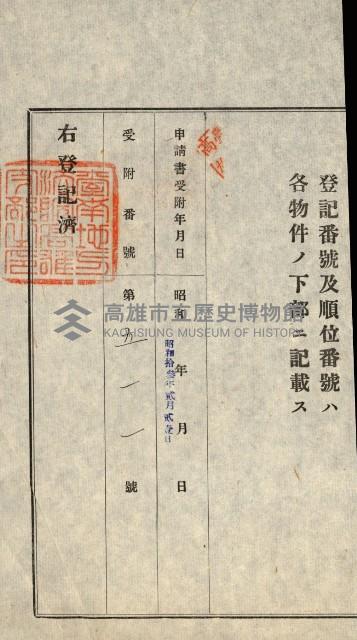 登記番號及順位番號ハ
各物件ノ下部ニ記載ス
申請書受附年月日
昭和 年 月 日
昭和拾叁年貳月貳壹日
受附番號
第五一一號
右登記濟
高雄市立歷史博物館
KAOHSIUNG MUSEUM OF HISTORY